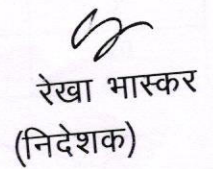 रेखा भास्कर
(निदेशक)